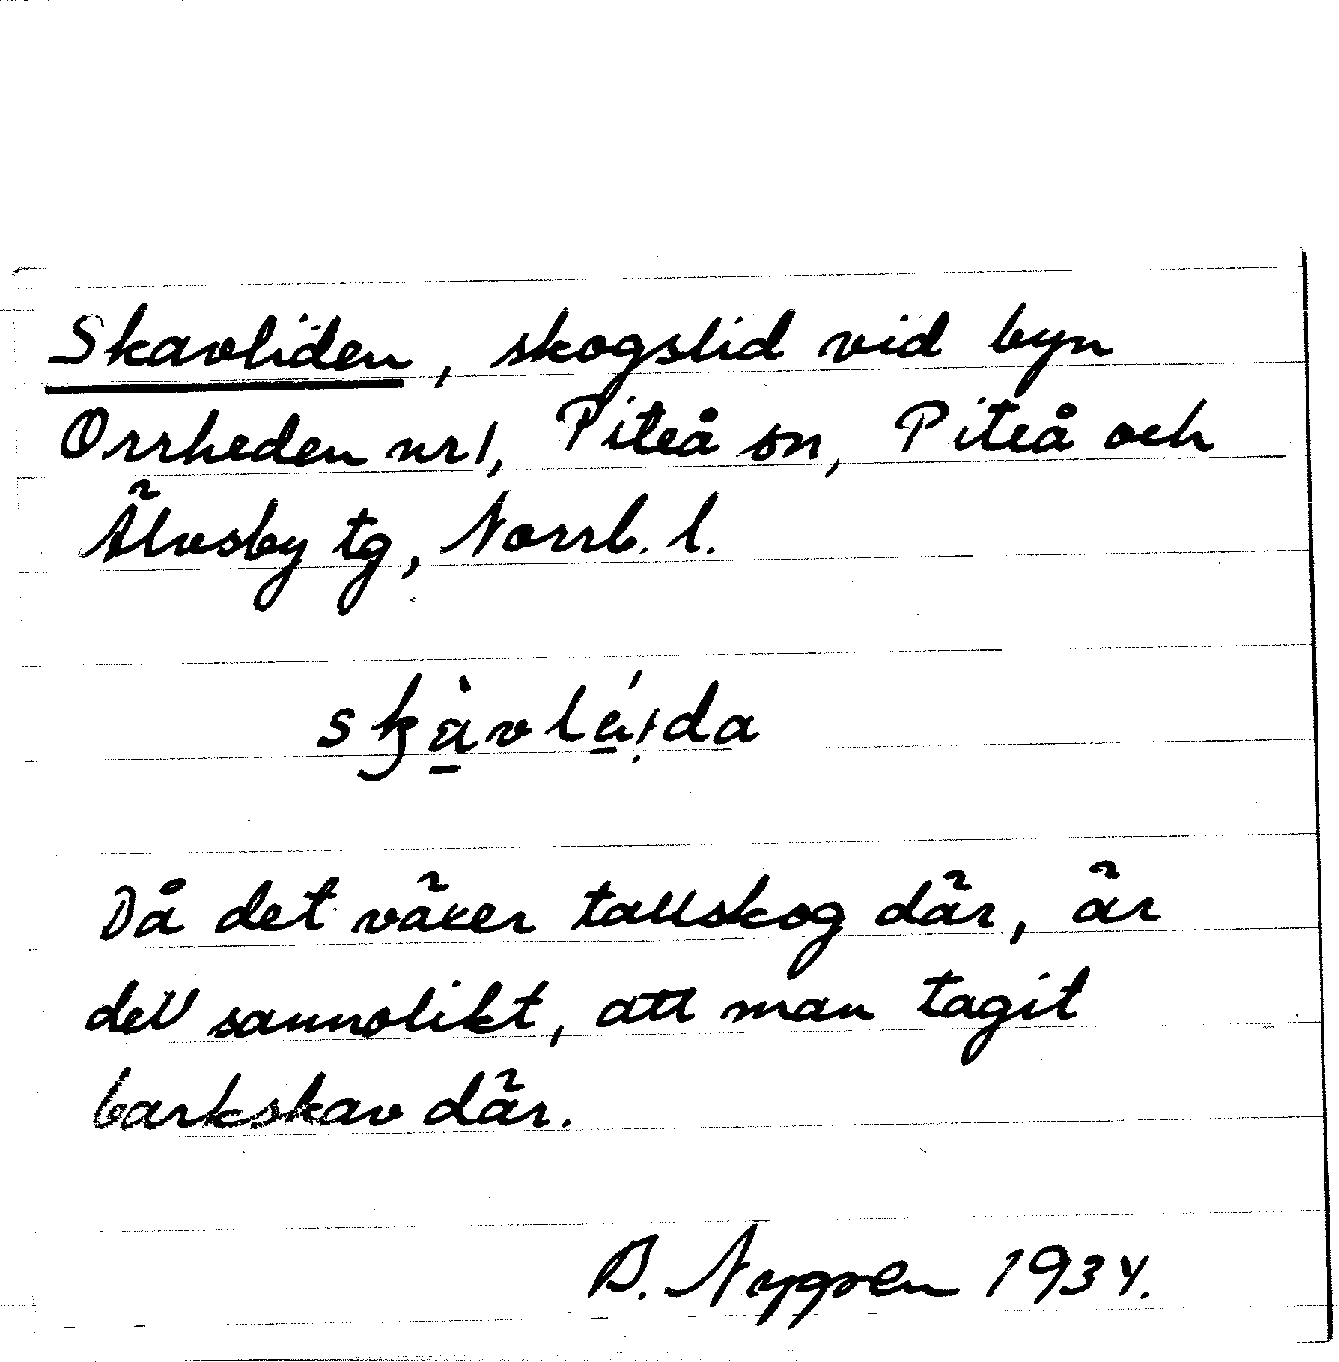 Skavliden, skogslid vid byn
Orrheden nr 1, Piteå sn, Piteå och
Älvsby tg, Norrb. l.
Då det växer tallskog där, är
det sannolikt, att man tagit
barkskav där.
B. Nygren 1934.